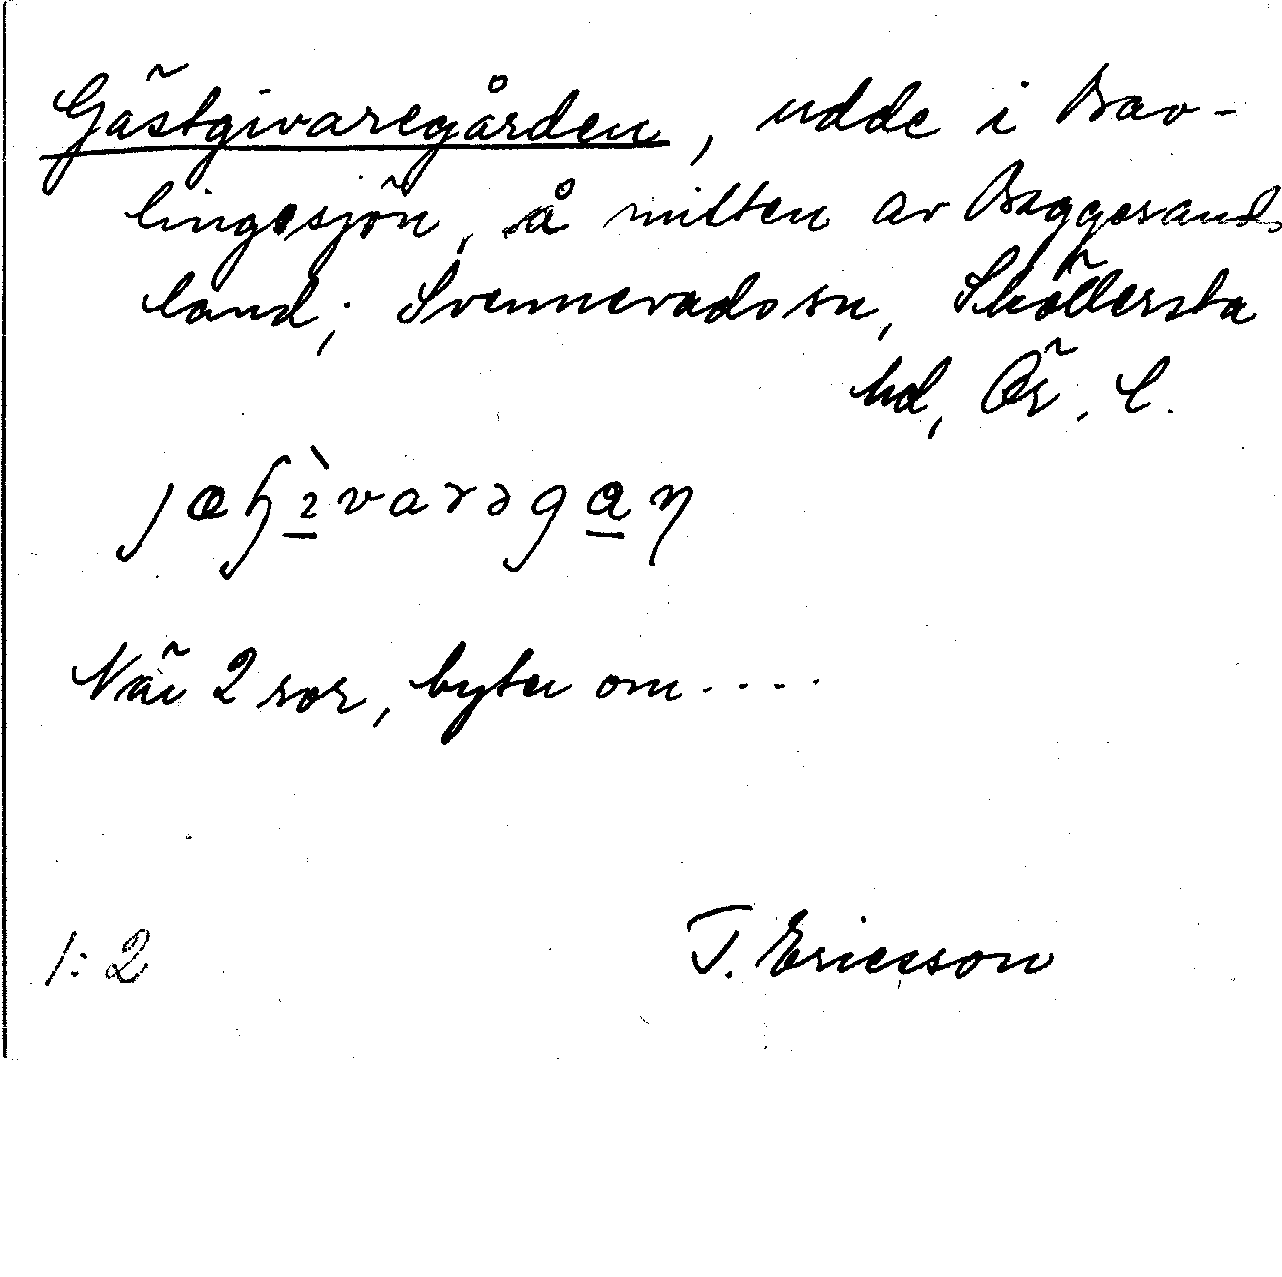 Gästgivaregården, udde i Bav-
lingesjön, å mitten av Baggesands
land; Svennevads sn, Sköllersta
hd, Ör. l.
När 2 ror, byter om....
1:2
T. Ericsson